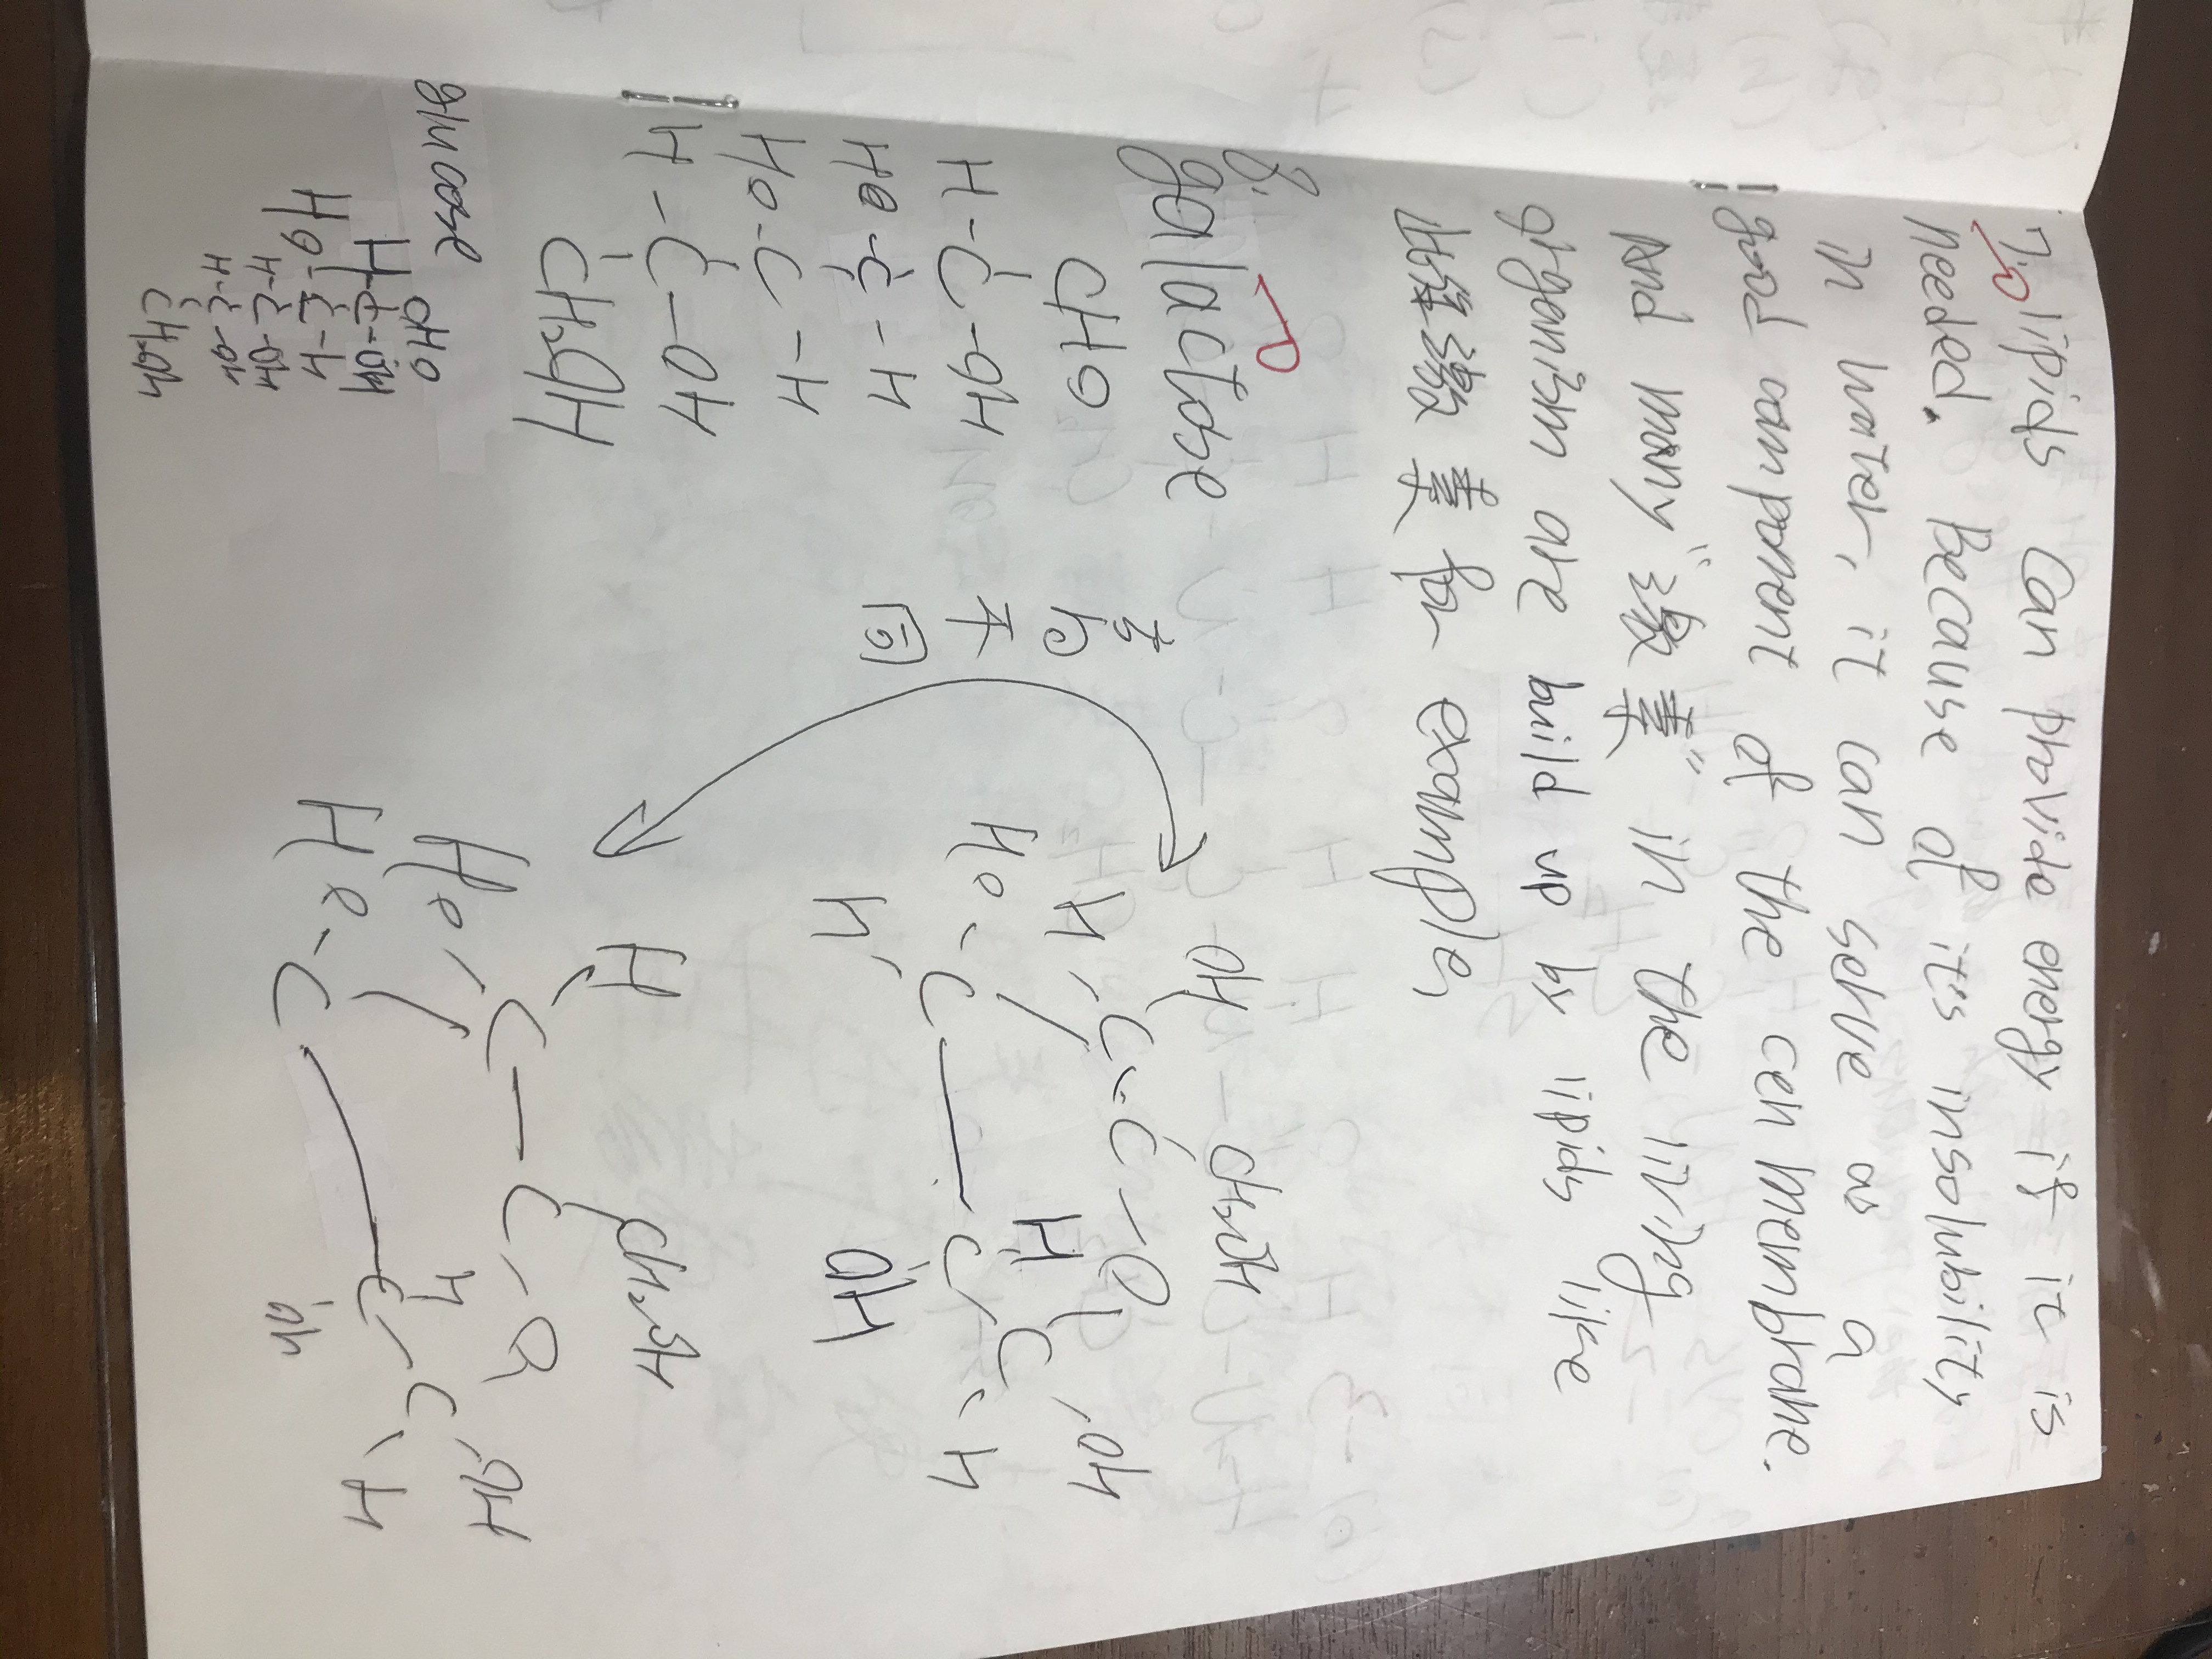 7. lipids can provide energy if it is
needed. Because of it's insolubility
in water, it can serve as a
good component of the cell membrane.
And many "激素" in the living
organism are build up by lipids like
性激素 for example.
8. galactose
CHO
H-C-OH
HO-C-H
HO-C-H
H-C-OH
CH2OH
glucose
CHO
H-C-OH
HO-C-H
H-C-OH
H-C-OH
CH2OH
不
同
OH CH2OH
H C-C-O OH
HO-C H C
H C-C-H
OH
H CH2OH
HO C-C-O OH
H C
C-C H
OH